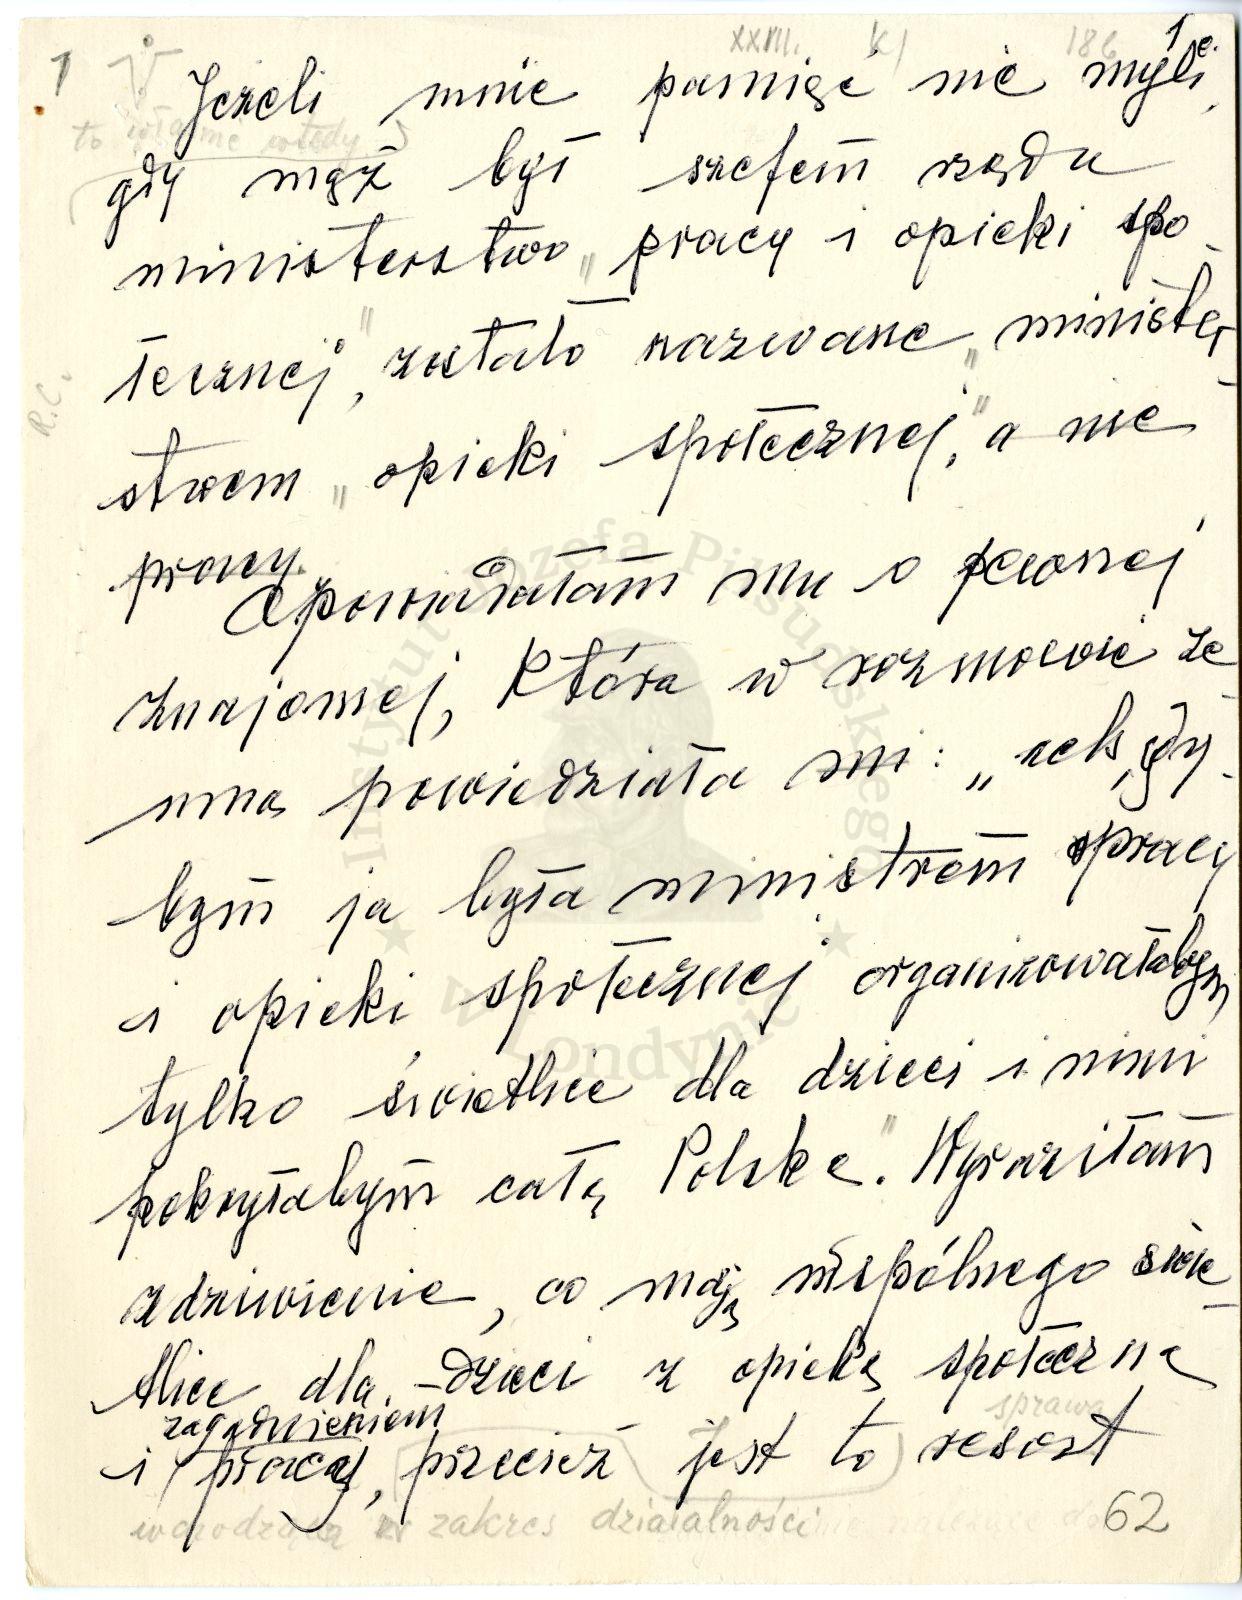 1 XXIII. K/ 186 1 c.
Jeżeli mnie pamięć nie myli,
to właśnie wtedy
gdy mąż był szefem rządu
ministerstwo „pracy i opieki spo-
łecznej", zostało nazwane „minister-
R.C.
stwem „opieki społecznej", a nie
pracy.
Opowiadałam mu o pewnej
znajomej, która w rozmowie ze
mną powiedziała mi: „ach, gdy-
bym ja była ministrem pracy
i opieki społecznej organizowałabym
tylko świetlice dla dzieci i nimi
pokryłabym całą Polskę". Wyraziłam
zdziwienie, co mają wspólnego świe-
tlice dla dzieci z opieką społeczną
zagadnieniem sprawa
i pracą, przecież jest to resort
wchodząca w zakres działalności
62
Instytut Józefa Piłsudskiego
w Londynie